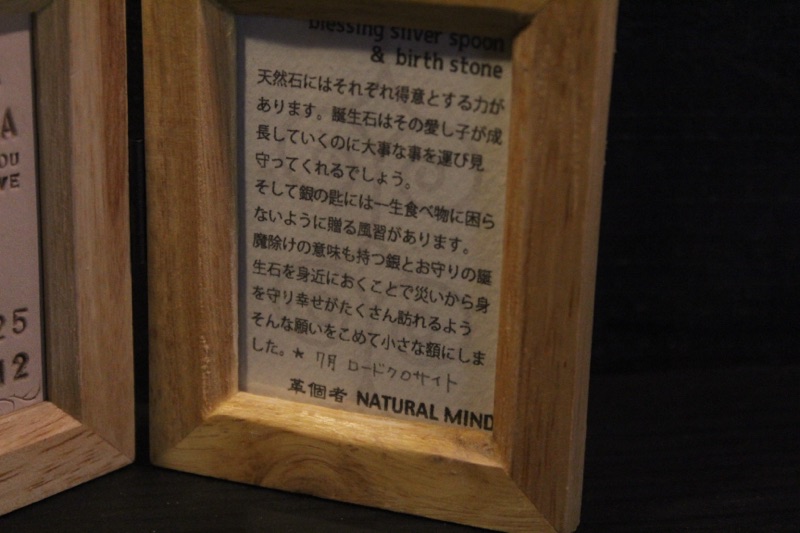 A
OU
VE
25
12
blessing silver spoon
& birth stone
天然石にはそれぞれ得意とする力が
あります。誕生石はその愛し子が成
長していくのに大事な事を運び見
守ってくれるでしょう。
そして銀の匙には一生食べ物に困ら
ないように贈る風習があります。
魔除けの意味も持つ銀とお守りの誕
生石を身近におくことで災いから身
を守り幸せがたくさん訪れるよう
そんな願いをこめて小さな額にしま
した。★ 7月 ロードクロサイト
革個者 NATURAL MIND